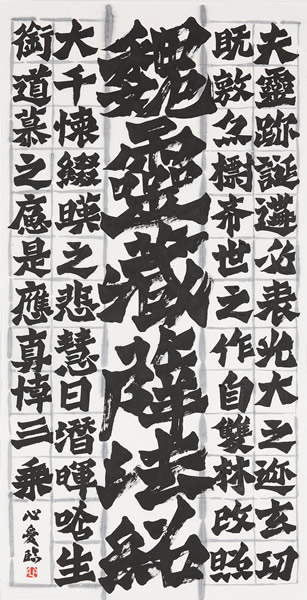 夫靈跡誕遘必表光大之迹玄功
既敷亦標希世之作自雙林改照
魏靈藏薛法紹
大千懷綴暎之悲慧日潛暉唅生
銜道慕之應是應真悼三乘
心愛臨